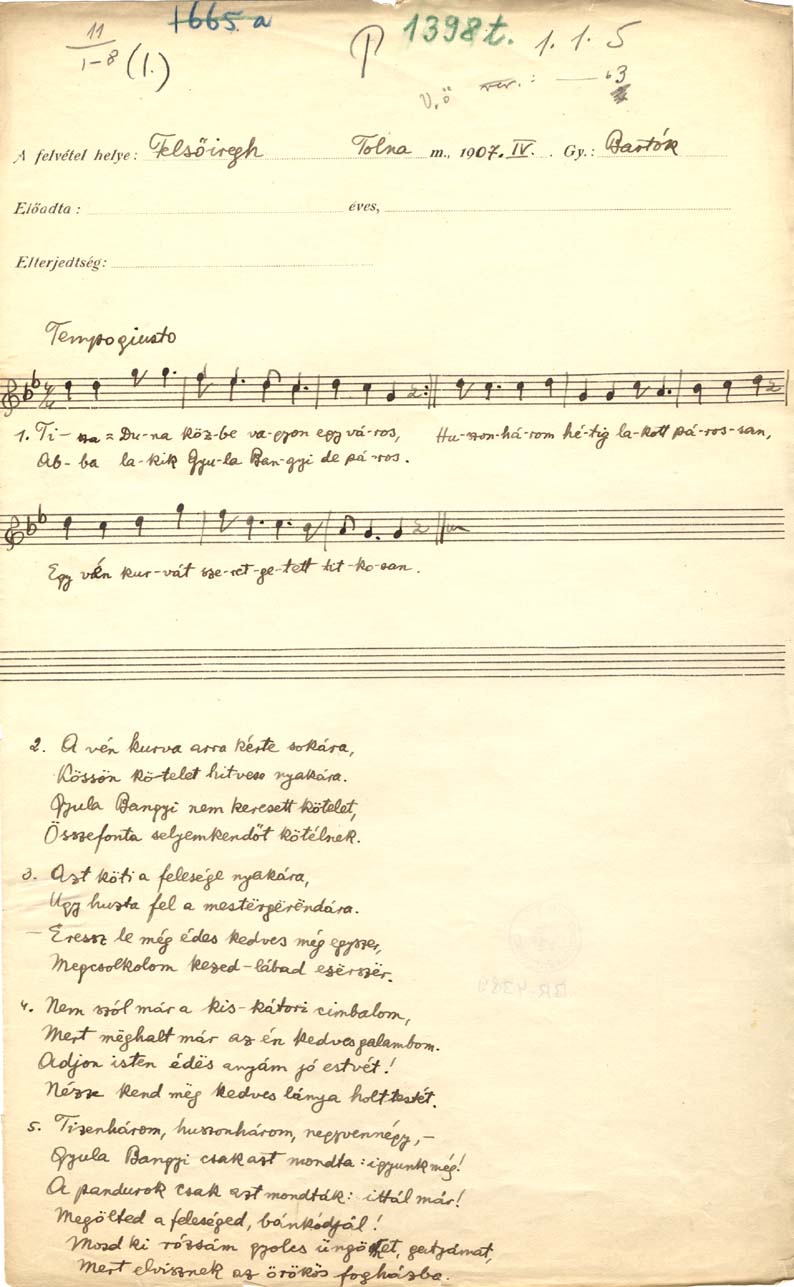 1665 a
11
1-8 (1.)
P 1398t. 1. 1. 5
V.ö : — 63
A felvétel helye: Felsőiregh Tolna m., 1907. IV. Gy.: Bartók
Előadta: éves,
Elterjedtség:
Tempo giusto
1. Ti-sza=Du-na köz-be va-gyon egy vá-ros, Hu-szon-há-rom hé-tig la-kott pá-ros-san,
Ab-ba la-kik Gyu-la Ban-gyi de pá-ros.
Egy vén kur-vát sze-ret-ge-tett tit-ko-san.
2. A vén kurva arra kérte sokára,
Kössön kö-telet hitvese nyakára.
Gyula Bangyi nem keresett kötelet,
Összefonta selyemkendőt kötélnek.
3. Azt köti a felesége nyakára,
Ugy huzta fel a mestërgërëndára.
– Eressz le még édes kedves még egyszer,
Megcsolkolom kezed-lábad ezërszër.
4. Nem szól már a kis-kátori cimbalom,
Mert mëghalt már az én kedves galambom.
Adjon isten édës anyám jó estvét!
Nézze kend mëg kedves lánya holttestét.
5. Tizenhárom, huszonhárom, negyvennégy, –
Gyula Bangyi csak azt mondta: igyunk még!
A pandurok csak azt mondták: ittál már!
Megölted a feleséged, bánkódjál!
Mosd ki rózsám gyolcs üngömet, gatyámat,
Mert elvisznek az örökös fogházba.